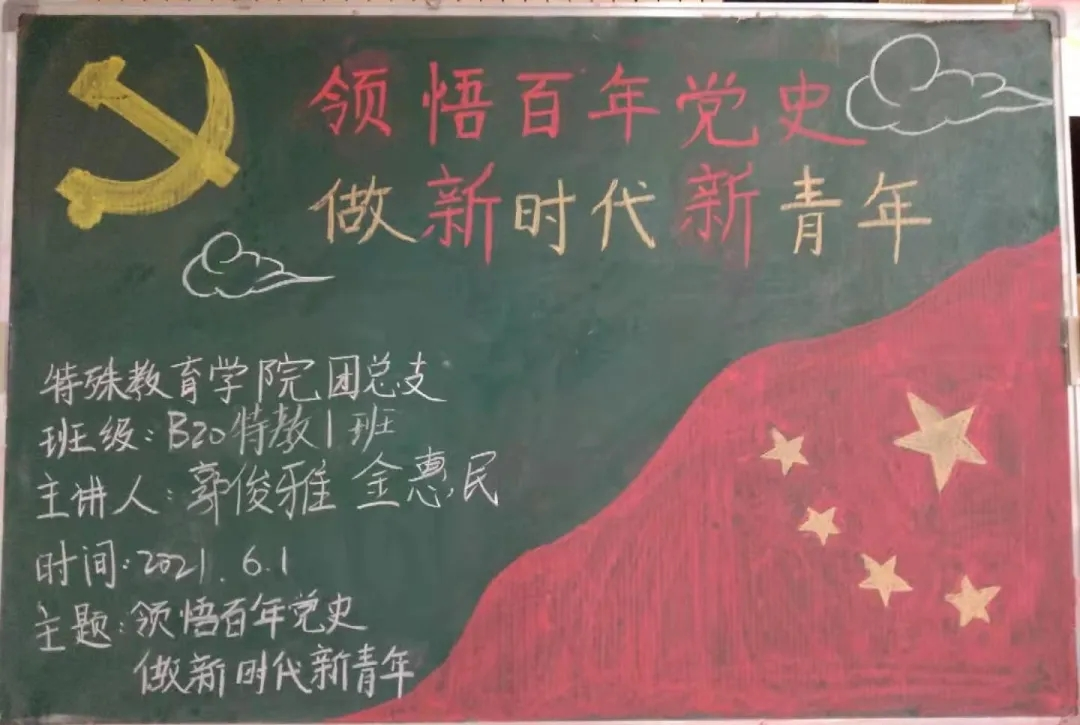 领悟百年党史
做新时代新青年
特殊教育学院团总支
班级：B20特教1班
主讲人：郭俊雅 金惠民
时间：2021.6.1
主题：领悟百年党史
做新时代新青年